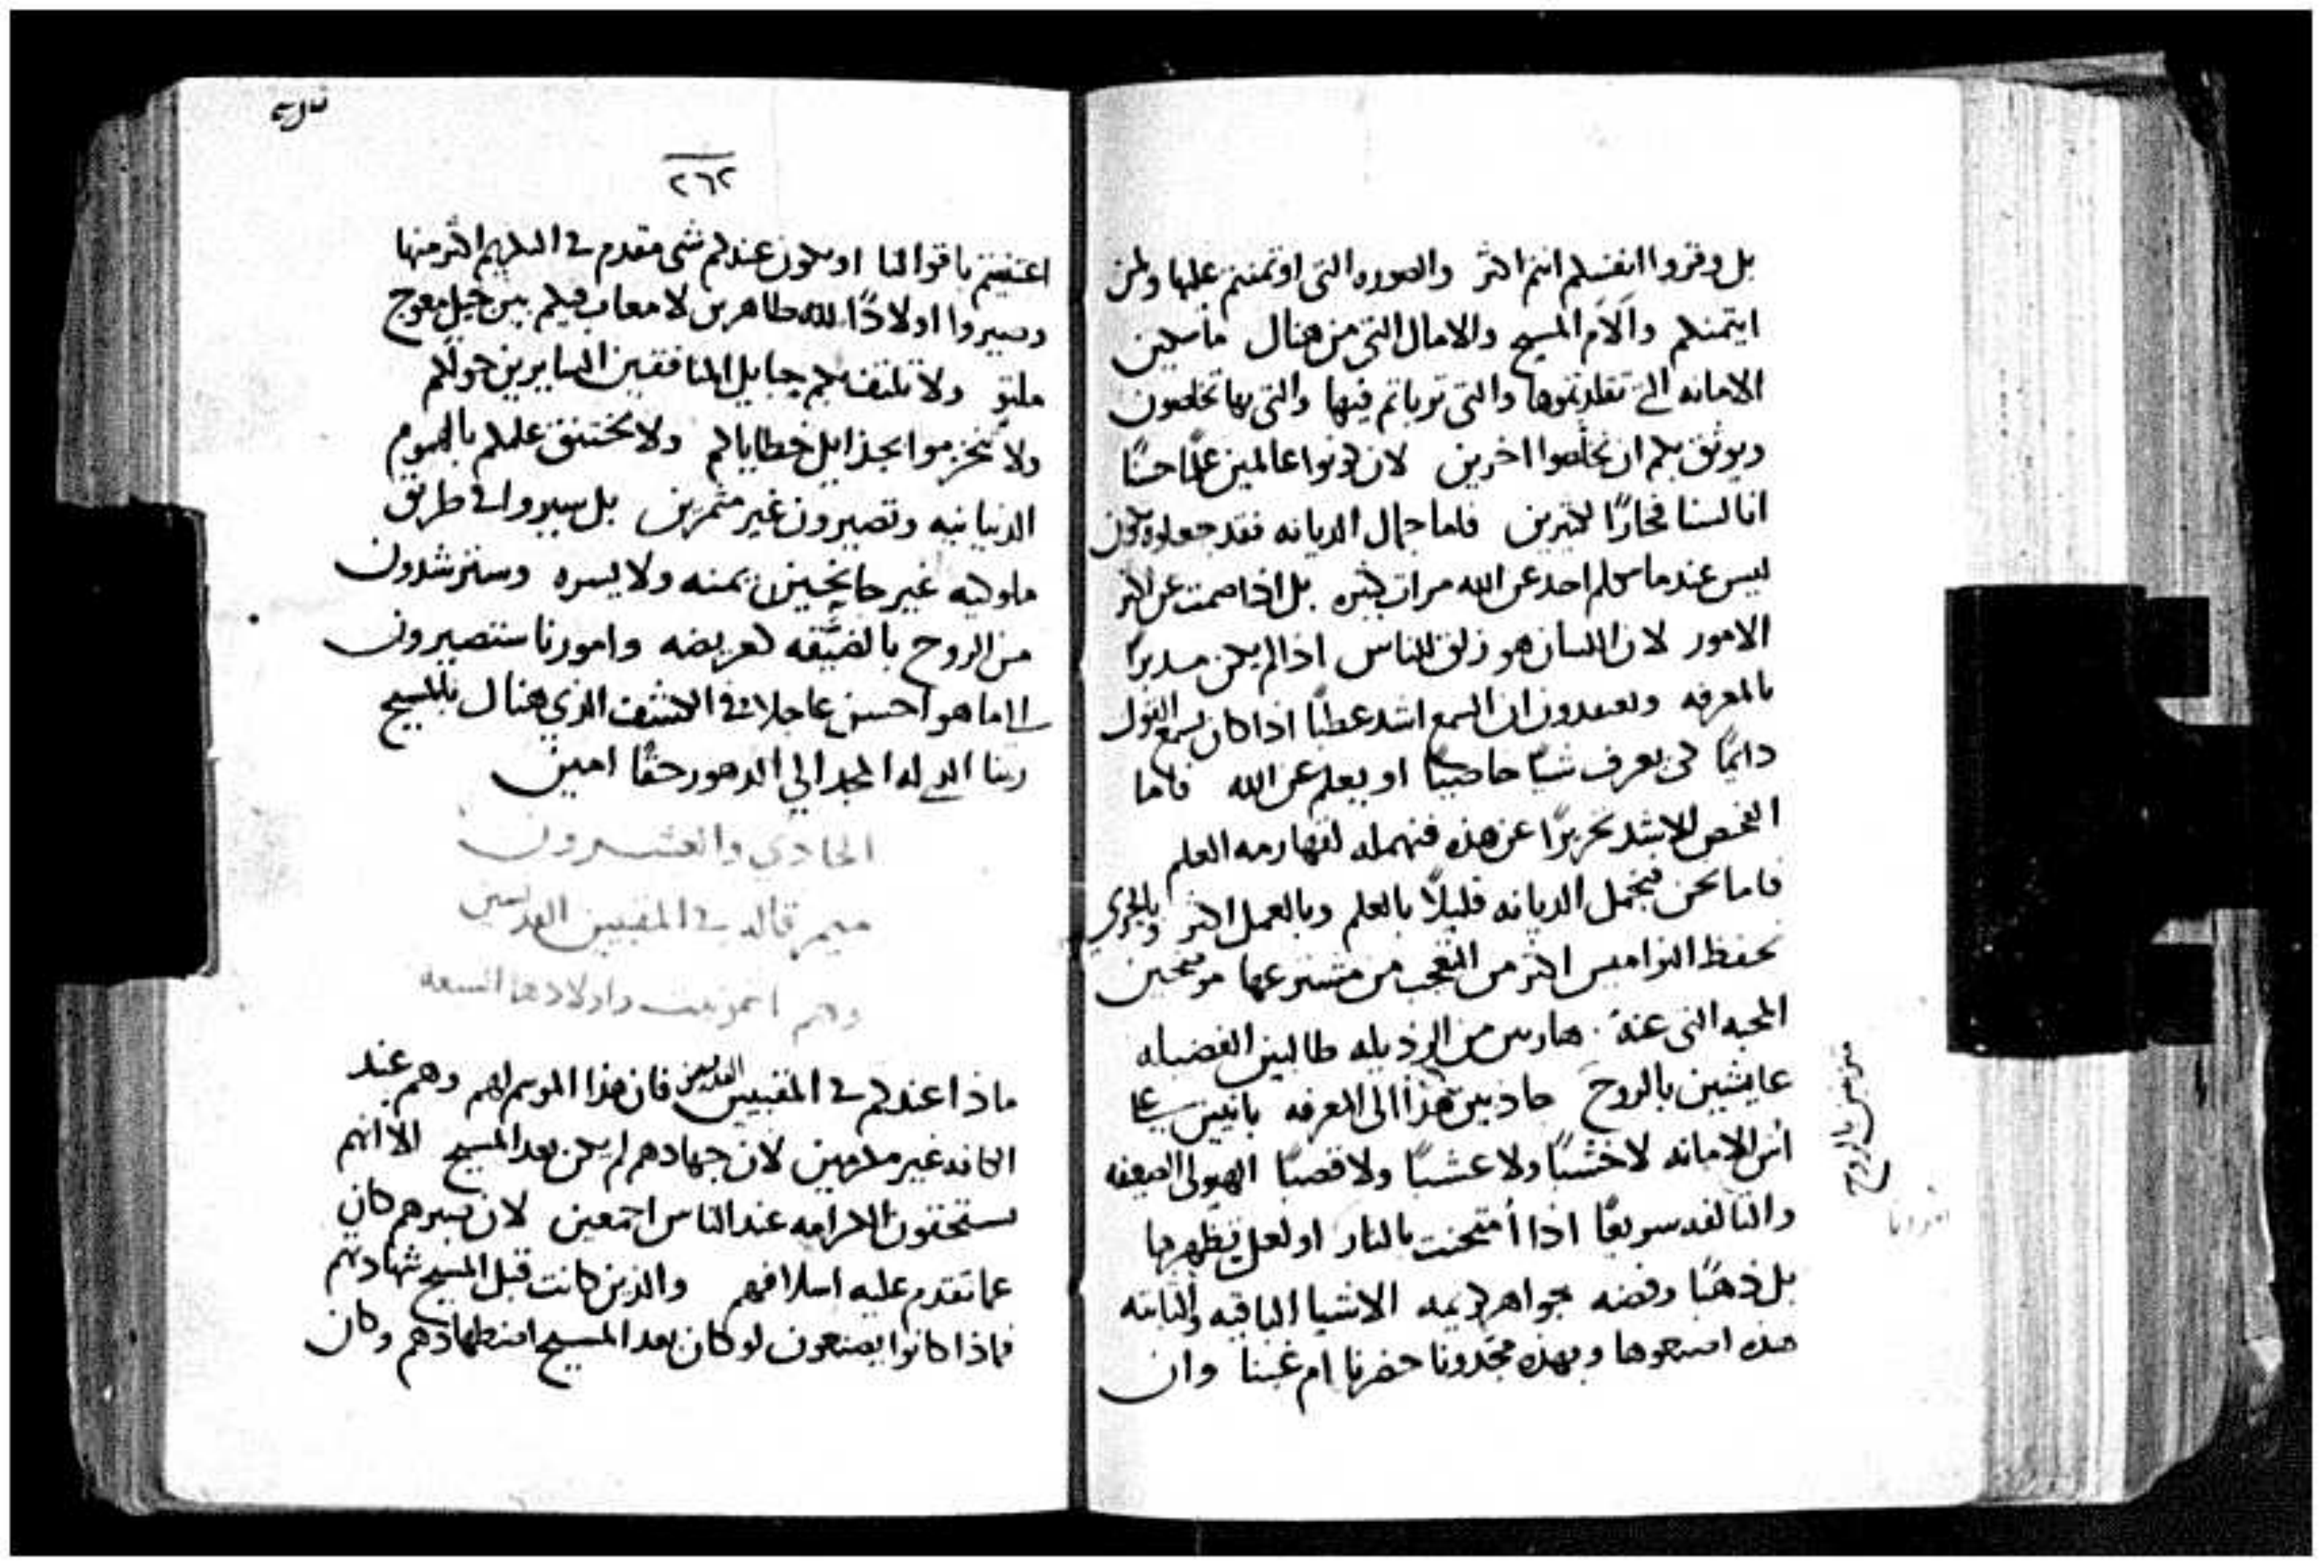 بل وقروا انفسكم انتم اكثر والصوره التى اوتمنتم عليها ولمن
ايتمنكم وآلام المسيح والامال التى من هناك ماسكين
الامانه التى تقلدتموها والتى تربيتم فيها والتى بها تخلصون
ويوثق بكم ان تخلصوا اخرين لان كونوا عالمين علمًا حسنًا
اننا لسنا فخارًا لكثيرين فاما جمال الديانه فقد جعلوه يكون
ليس عندما يتكلم احد عن الله مرات كثيره بل اذا صمت عن اكثر
الامور لان اللسان هو زلق للناس اذا لم يكن مدبرًا
بالمعرفه وتعتقدون ان السمع اشد عطبًا اذا كان يسمع القول
دايمًا لكى يعرف شيًا او يعلم عن الله فاما
الفحص الاشد تحريرًا عن هذه فنهمله لقهارمه العلم
فاما نحن فنجمل الديانه قليلًا بالعلم وبالعمل اكثر وبالحري
نحفظ النواميس اكثر من التعجب من مشترعها موضحين
المحبه التى عنده هاربين من الرذيله طالبين الفضيله
عايشين بالروح جاذبين هذا الى المعرفه بانيين على
أس الامانه لا خشبًا ولا عشبًا ولا قصبًا الهيولى الضعيفه
والتالفه سريعًا اذا أمتحنت بالنار او لعل تظهرها
بل ذهبًا وفضه جواهر كريمه الاشيا الباقيه والثابته
هذه اصنعوها وبهذه مجدونا حضرنا ام غبنا وان
بالروح
٢٦٢
اعتنيتم باقوالنا او يكون عندكم شى مقدم فى التكريم اكثر منها
وصيروا اولادًا لله طاهرين لا معاب فيكم بين جيل معوج
ملتوٍ ولا تلتف بكم حبايل المنافقين السايرين حولكم
ولا تحزموا بجدايل خطاياكم ولا يختنق علمكم بالهموم
الدنيانيه وتصيرون غير مثمرين بل سيروا فى طريق
ملوكيه غير جانحين يمنه ولا يسره وسترشدون
من الروح بالضيّقه كعريضه وامورنا ستصيرون
الى ما هو احسن عاجلا وفى الكشف الذي هناك بالمسيح
ربنا الذى له المجد الي الدهور حقًا امين
الحادي والعشرون
ميمر قاله فى المقبيين القديسين
وهم اشمونيت واولادها السبعه
ماذا عندكم فى المقبيين القديسين فان هذا الموسم لهم وهم عند
الكافه غير مكرمين لان جهادهم لم يكن بعد المسيح الا انهم
يستحقون الاكرامه عند الناس اجمعين لان صبرهم كان
عما تقدم عليه اسلافهم والذين كانت قبل المسيح شهادتهم
فماذا كانوا يصنعون لو كان بعد المسيح اضطهادهم وكان